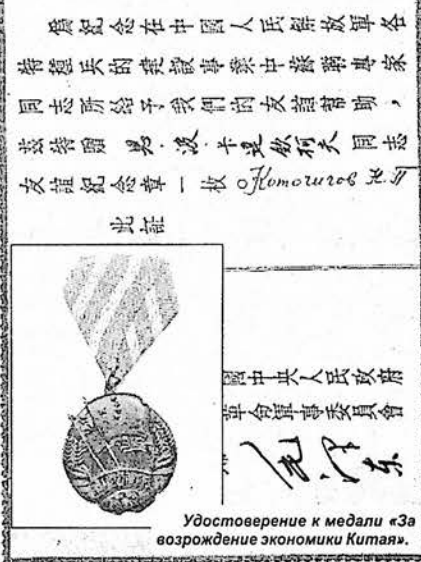 爲紀念在中國人民解放軍各
特種兵的建設事業中蘇聯專家
同志所給予我們的友誼幫助，
茲特贈 波·卡 欽柯夫 同志
友誼紀念章一枚 Коточигов
此証
國中央人民政府
革命軍事委員會
毛泽东
Удостоверение к медали «За
возрождение экономики Китая».